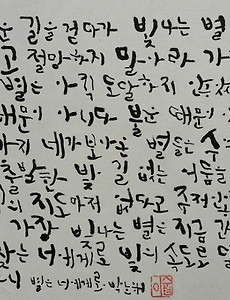 운 길을 걷다가 빛나는 별
고 절망하지 말아라 가
별은 아직 도달하지 안
때문이 아니다 불운 때문이 아
까지 네가 보아온 별들은 수
출발한 빛 길 없는 어둠을
의 지도마저 없다고 주저
가장 빛나는 별은 지금 간
찾는 너에게로 빛의 속도로 달
니 별은 너에게로 박노해